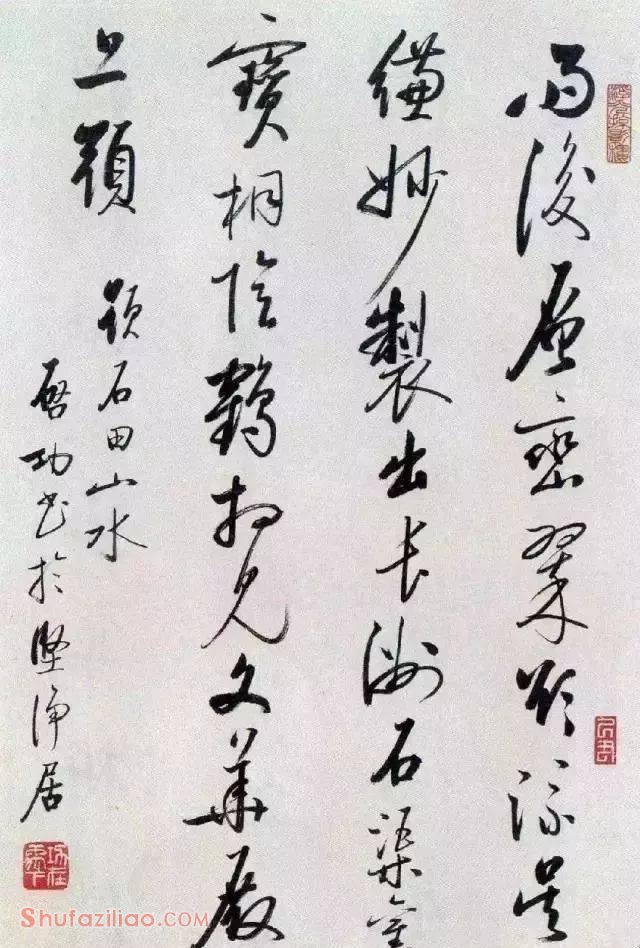 雨後層巒翠欲流吳
縑妙製出長洲石渠
寶桐陰鶴相見文華殿
上頭
題石田山水
啓功書於堅淨居
Shufaziliao.com